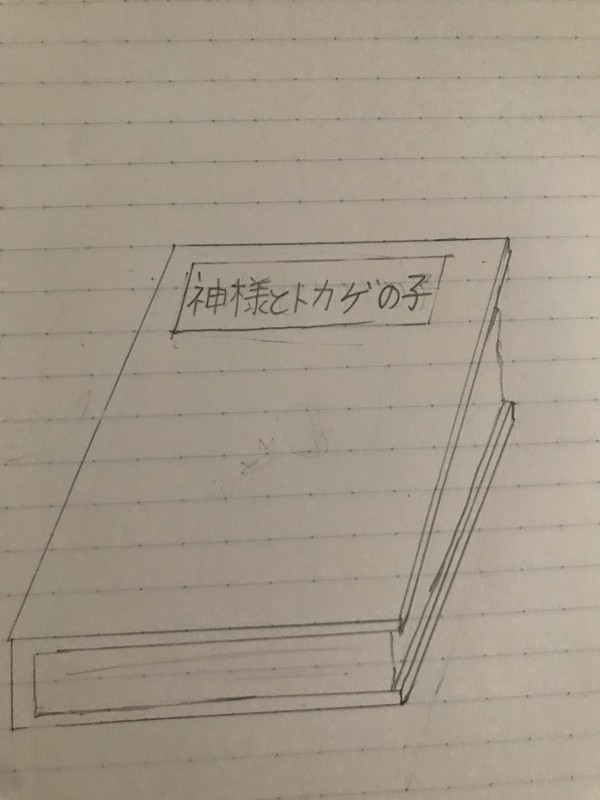 神様とトカゲの子